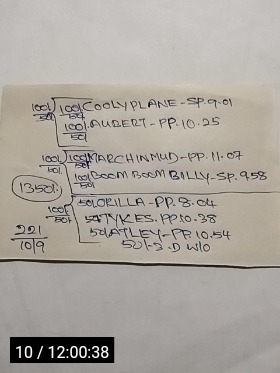 100/50 100/50 COOLYPLANE - SP. 9.01
100/50 AUBERT - PP. 10.25
100/50 100/50 MARCHINMUD - PP. 11.07
100/50 BOOM BOOM BILLY - SP. 958
1350/.
100/50 50/ORILLA - PP. 8.04
50/TYKES. PP10.38
221 50/ATLEY - PP. 10.54
10/9 50/.-3.D W/O
10 / 12:00:38